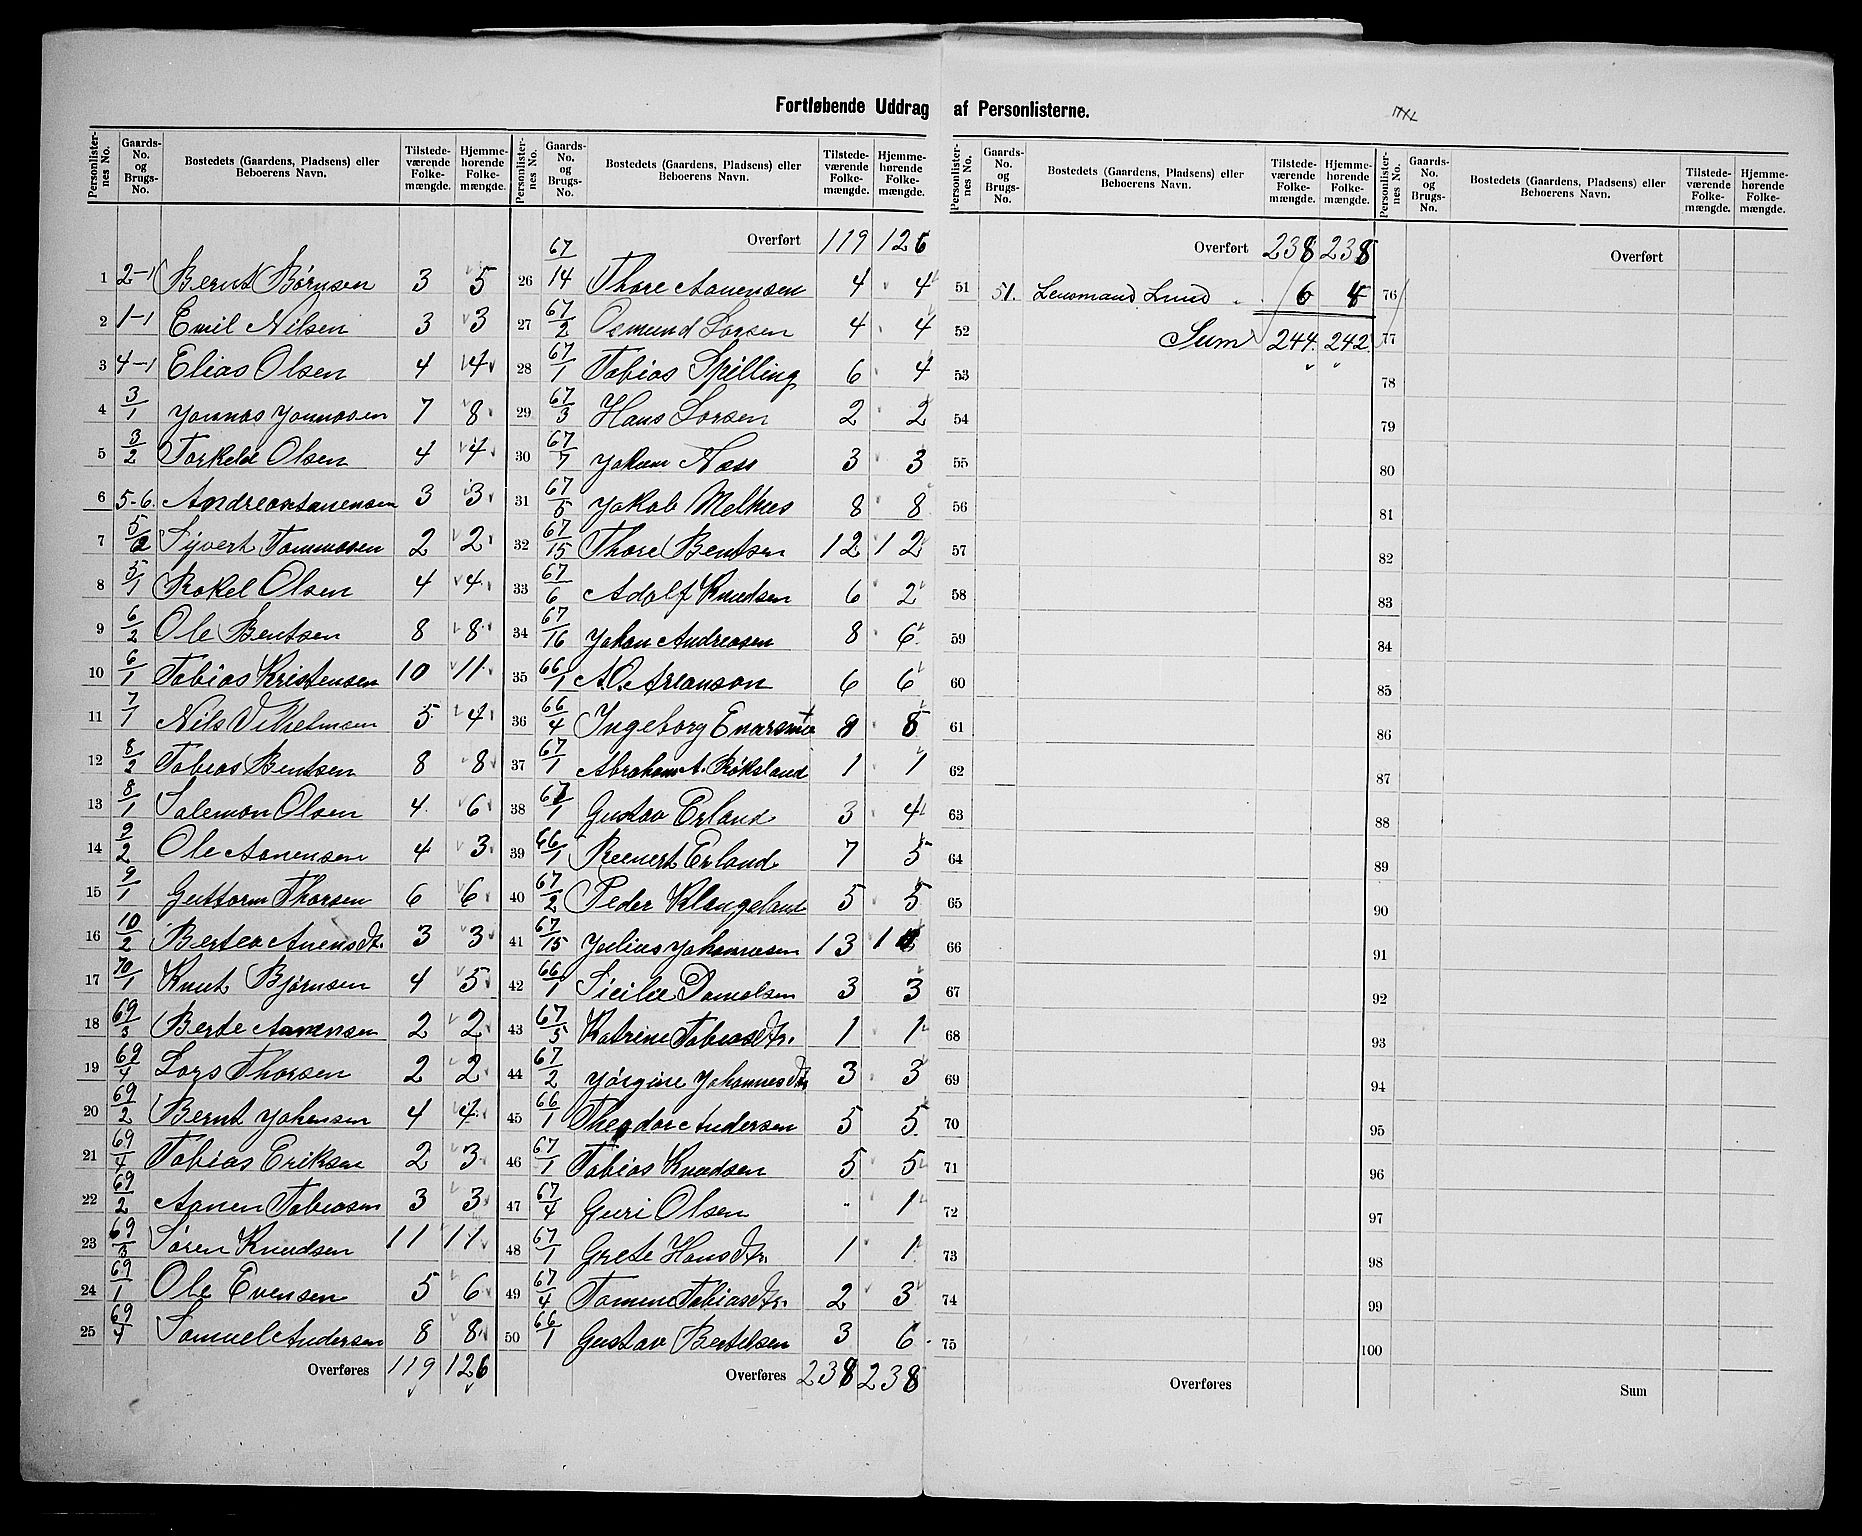 Fortløbende Uddrag af Personlisterne.
Personlister-nes No. | Gaards-No. og Brugs-No. | Bostedets (Gaardens, Pladsens) eller Beboerens Navn. | Tilstede-værende Folke-mængde. | Hjemme-hørende Folke-mængde.
1 2-1 Bernt Børnsen 3 5
2 1-1 Emil Nilsen 3 3
3 4-1 Elias Olsen 4 4
4 3/1 Jonnas Jonnasen 7 8
5 3/2 Torkeld Olsen 4 4
6 5-6 Andreas Aanensen 3 3
7 5/2 Syvert Tommasen 2 2
8 5/1 Rakel Olsen 4 4
9 6/2 Ole Bentsen 8 8
10 6/1 Tobias Kristensen 10 11
11 7/1 Nils Vilhelmsen 5 4
12 8/2 Tobias Bentsen 8 8
13 8/1 Salemon Olsen 4 6
14 9/2 Ole Aanensen 4 3
15 9/1 Guttorm Thorsen 6 6
16 10/2 Bertea Anensdtr. 3 3
17 70/1 Knut Bjørnsen 4 5
18 69/3 Berte Aanensen 2 2
19 69/4 Lars Thorsen 2 2
20 69/2 Bernt Johensen 4 4
21 69/4 Tobias Eriksen 2 3
22 69/2 Aanen Tobiasen 3 3
23 69/3 Søren Knudsen 11 11
24 69/1 Ole Evensen 5 6
25 69/4 Samuel Andersen 8 8
Overføres 119 126
Personlister-nes No. | Gaards-No. og Brugs-No. | Bostedets (Gaardens, Pladsens) eller Beboerens Navn. | Tilstede-værende Folke-mængde. | Hjemme-hørende Folke-mængde.
Overført 119 126
26 67/14 Thore Aanensen 4 4
27 67/2 Osmund Larsen 4 4
28 67/1 Tobias Spilling 6 4
29 67/3 Hans Larsen 2 2
30 67/7 Jakam Næss 3 3
31 67/5 Jakob Melhus 8 8
32 67/15 Thore Bentsen 12 12
33 67/6 Adolf Knudsen 6 2
34 67/16 Johan Andreasen 8 6
35 66/1 A. O. Areanson 6 6
36 66/4 Ingeborg 8 8
37 67/1 Abraham A. Røksland 1 1
38 67/1 Gustav Erland 3 4
39 66/1 Reenert Erland 7 5
40 67/2 Peder Klungeland 5 5
41 67/15 Julius Johannesen 13
42 66/1 Sicilie Danielsen 3 3
43 67/5 Katrine Tobiasdtr. 1 1
44 67/2 Jørgine Johannesdtr 3 3
45 66/1 Theodor Andersen 5 5
46 67/1 Tobias Knudsen 5 5
47 67/4 Guri Olsen " 1
48 67/1 Grete Hansdtr. 1 1
49 67/4 Tomine Tobiasdtr. 2 3
50 66/1 Gustav Bertelsen 3 6
Overføres 238 238
Personlister-nes No. | Gaards-No. og Brugs-No. | Bostedets (Gaardens, Pladsens) eller Beboerens Navn. | Tilstede-værende Folke-mængde. | Hjemme-hørende Folke-mængde.
Overført 238 238
51 51. Lensmand Lund 6 4
52 Sum 244. 242.
53
54
55
56
57
58
59
60
61
62
63
64
65
66
67
68
69
70
71
72
73
74
75
Overføres
Personlister-nes No. | Gaards-No. og Brugs-No. | Bostedets (Gaardens, Pladsens) eller Beboerens Navn. | Tilstede-værende Folke-mængde. | Hjemme-hørende Folke-mængde.
Overført
76
77
78
79
80
81
82
83
84
85
86
87
88
89
90
91
92
93
94
95
96
97
98
99
100
Sum